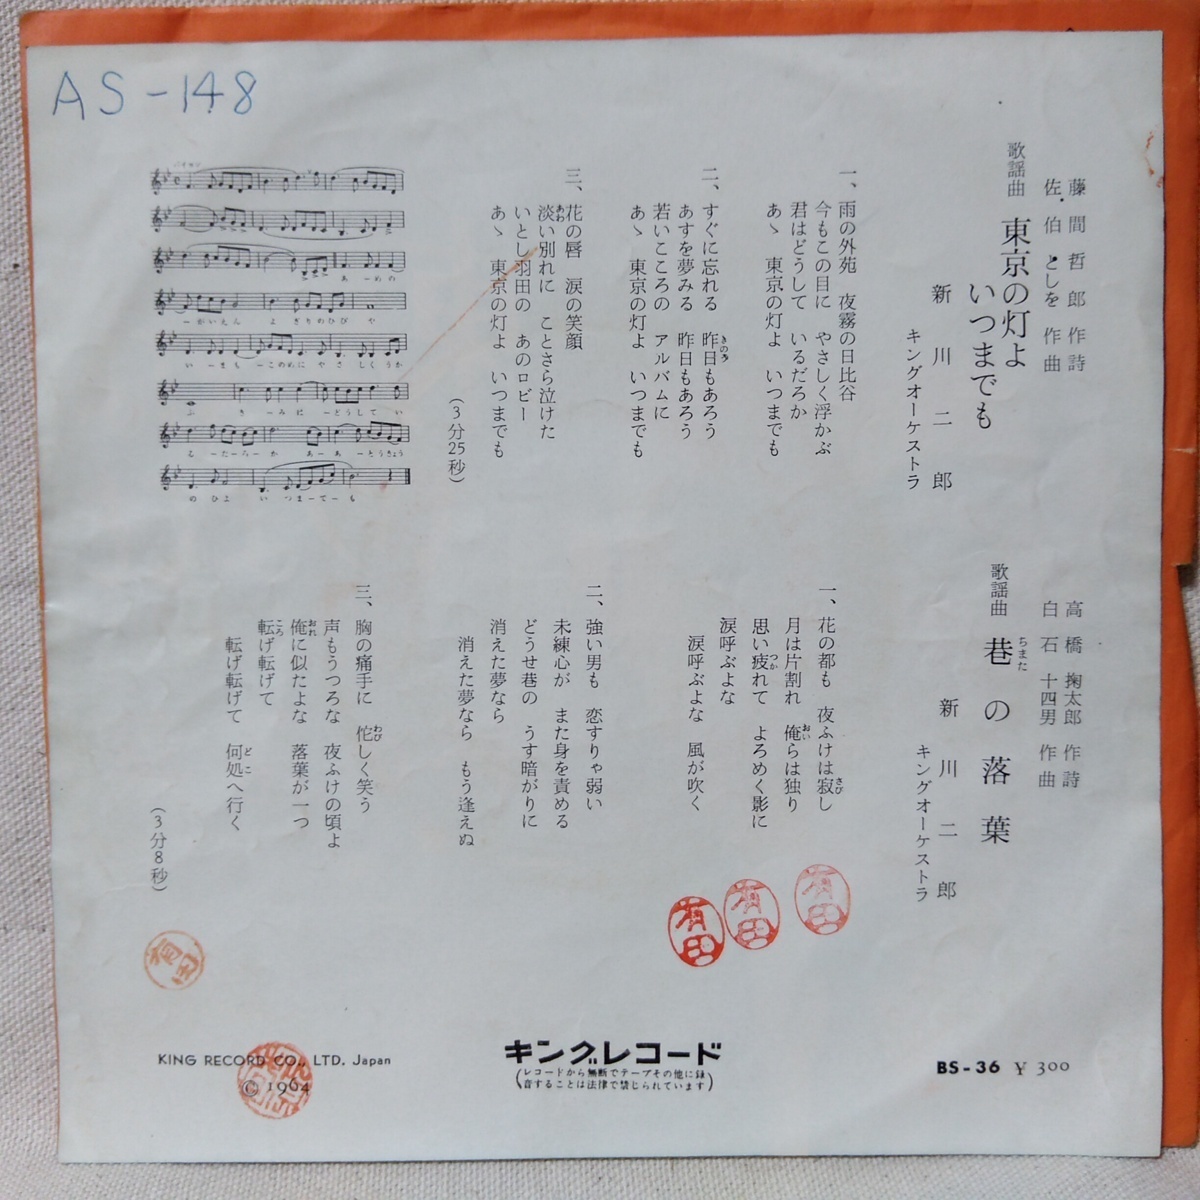 AS-148
藤間哲郎 作詩
佐伯としを 作曲
歌謡曲 東京の灯よ
いつまでも
新川二郎
キングオーケストラ
一、雨の外苑 夜霧の日比谷
今もこの目に やさしく浮かぶ
君はどうして いるだろか
あゝ 東京の灯よ いつまでも
二、すぐに忘れる 昨日もあろう
きのう
あすを夢みる 昨日もあろう
若いこころの アルバムに
あゝ 東京の灯よ いつまでも
三、花の唇 涙の笑顔
淡い別れに ことさら泣けた
あわ
いとし羽田の あのロビー
あゝ 東京の灯よ いつまでも
(3分25秒)
あーめの
ーがいえん よぎりのひび や
い ーまも ーこのめに やさ しくうか
ぶ き ーみに ーどうして い
る ーだーろー か あ ーあ ーとうきょう
の ひよ い つまーでー も
高橋掬太郎 作詩
白石十四男 作曲
歌謡曲 巷の落葉
ちまた
新川二郎
キングオーケストラ
一、花の都も 夜ふけは寂し
さび
月は片割れ 俺らは独り
おい
思い疲れて よろめく影に
つか
涙呼ぶよな
涙呼ぶよな 風が吹く
二、強い男も 恋すりゃ弱い
未練心が また身を責める
どうせ巷の うす暗がりに
消えた夢なら
消えた夢なら もう逢えぬ
三、胸の痛手に 佗しく笑う
わび
声もうつろな 夜ふけの頃よ
俺に似たよな 落葉が一つ
おれ
転げ転げて
ころ
転げ転げて 何処へ行く
どこ
(3分8秒)
有田
有田
有田
有田
KING RECORD CO., LTD. Japan
© 1964
キングレコード
(レコードから無断でテープその他に録
音することは法律で禁じられています)
BS-36 ¥300